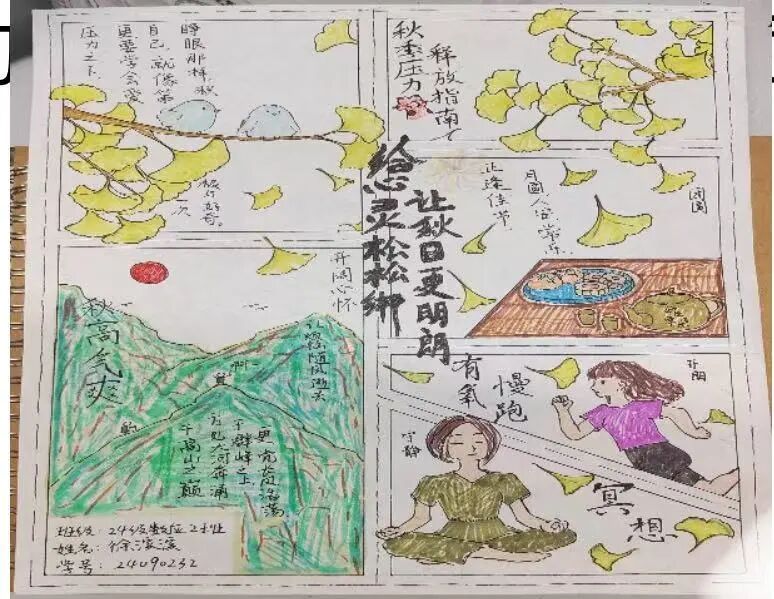 压力之下、
更要学会爱
自己,就像第
一次
睁眼那样,
秋季压力
释放指南
给心灵松松绑
让秋日更明朗
正逢佳节
月圆人安常乐
团圆
秋高气爽
开阔心怀
让烦恼随风逝去
于高山之巅
方见大河奔涌
于群峰之上
更觉长风浩荡
有氧
慢跑
开朗
宁静
冥想
班级:24级数应2班
姓名:徐
学号:24090232